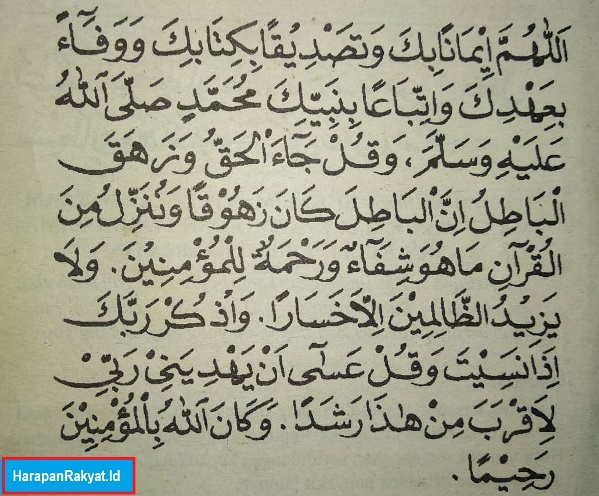 اَللّٰهُمَّ اِيْمَانًا بِكَ وَتَصْدِيْقًا بِكِتَابِكَ وَوَفَآءً
بِعَهْدِكَ وَاِتِّبَاعًا بِنَبِيِّكَ مُحَمَّدٍ صَلَّى اَللّٰهُ
عَلَيْهِ وَسَلَّمَ، وَقُلْ جَآءَ الْحَقُّ وَزَهَقَ
الْبَاطِلُ اِنَّ الْبَاطِلَ كَانَ زَهُوْقًا وَنُنَزِّلُ مِنَ
الْقُرْآنِ مَا هُوَ شِفَآءٌ وَرَحْمَةٌ لِلْمُؤْمِنِيْنَ. وَلَا
يَزِيْدُ الظَّالِمِيْنَ اِلَّاخَسَارًا. وَاذْكُرْ رَبَّكَ
اِذَا نَسِيْتَ وَقُلْ عَسٰٓى اَنْ يَهْدِيَنِيْ رَبِّيْ
لِاَقْرَبَ مِنْ هٰذَا رَشَدًا. وَكَانَ اَللّٰهُ بِالْمُؤْمِنِيْنَ
رَحِيْمًا.
HarapanRakyat.Id